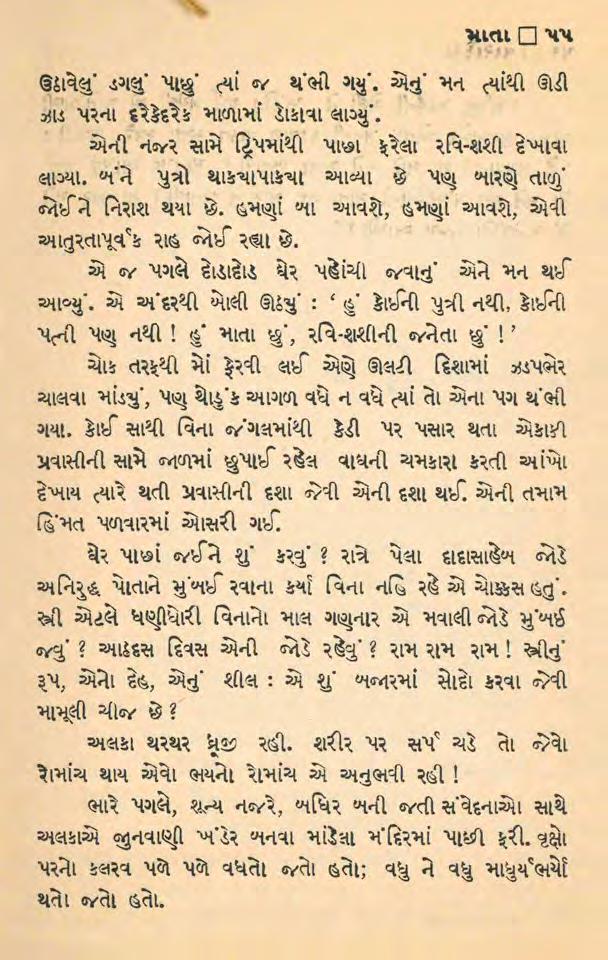 માતા □ ૫૫
ઉઠાવેલું ડગલું પાછું ત્યાં જ થંભી ગયું. એનું મન ત્યાંથી ઊડી
ઝાડ પરના દરેકેદરેક માળામાં ડોકાવા લાગ્યું.
એની નજર સામે ટ્રિપમાંથી પાછા ફરેલા રવિ-શશી દેખાવા
લાગ્યા. બંને પુત્રો થાકયાપાકયા આવ્યા છે પણ બારણે તાળું
જોઈને નિરાશ થયા છે. હમણાં બા આવશે, હમણાં આવશે, એવી
આતુરતાપૂર્વક રાહ જોઈ રહ્યા છે.
એ જ પગલે દોડાદોડ ઘેર પહોંચી જવાનું એને મન થઈ
આવ્યું. એ અંદરથી બોલી ઊઠયું : ‘ હું કોઈની પુત્રી નથી, કોઈની
પત્ની પણ નથી ! હું માતા છું, રવિ-શશીની જનેતા છું !’
ચોક તરફથી મોં ફેરવી લઈ એણે ઊલટી દિશામાં ઝડપભેર
ચાલવા માંડયું, પણ થોડુંક આગળ વધે ન વધે ત્યાં તો એના પગ થંભી
ગયા. કોઈ સાથી વિના જંગલમાંથી કેડી પર પસાર થતા એકાકી
પ્રવાસીની સામે જાળમાં છુપાઈ રહેલ વાઘની ચમકારા કરતી આંખો
દેખાય ત્યારે થતી પ્રવાસીની દશા જેવી એની દશા થઈ. એની તમામ
હિંમત પળવારમાં ઓસરી ગઈ.
ઘેર પાછાં જઈને શું કરવું ? રાત્રે પેલા દાદાસાહેબ જોડે
અનિરુદ્ધ પોતાને મુંબઈ રવાના કર્યા વિના નહિ રહે એ ચોક્કસ હતું.
સ્ત્રી એટલે ધણીધોરી વિનાનો માલ ગણનાર એ મવાલી જોડે મુંબઈ
જવું ? આઠદસ દિવસ એની જોડે રહેવું ? રામ રામ રામ ! સ્ત્રીનું
રૂપ, એનો દેહ, એનું શીલ : એ શું બજારમાં સોદો કરવા જેવી
મામૂલી ચીજ છે ?
અલકા થરથર ધ્રૂજી રહી. શરીર પર સર્પ ચડે તો જેવો
રોમાંચ થાય એવો ભયનો રોમાંચ એ અનુભવી રહી !
ભારે પગલે, શૂન્ય નજરે, બધિર બની જતી સંવેદનાઓ સાથે
અલકાએ જુનવાણી ખંડેર બનવા માંડેલા મંદિરમાં પાછી ફરી. વૃક્ષો
પરનો કલરવ પળે પળે વધતો જતો હતો; વધુ ને વધુ માધુર્યભર્યો
થતો જતો હતો.